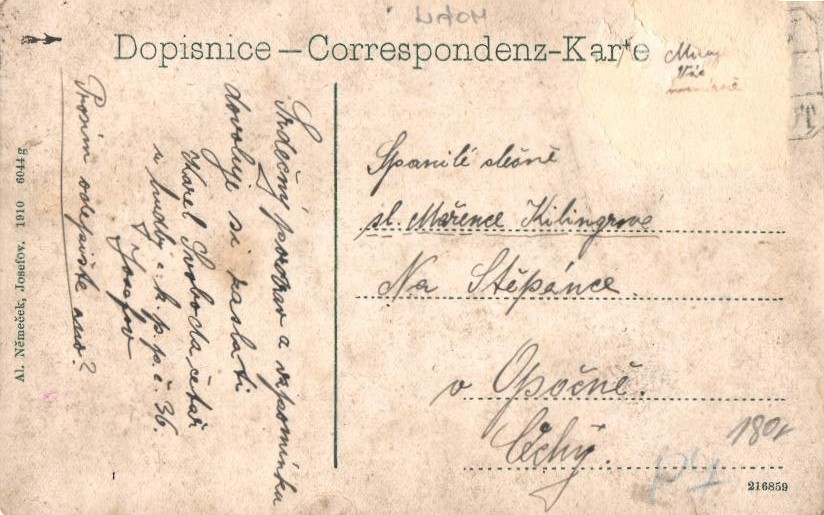 Dopisnice – Correspondenz-Karte
Srdečný pozdrav a vzpomínku
dovoluje si zaslati
Karel Svoboda četař
u hudby c. k. p. p. č. 36.
Josefov
Prosím odepište ano?
Spanilé slečně
sl. Mařence Kilingrové
Na Štěpánce
v Opočně.
Čechy.
180,-
216859
Al. Němeček, Josefov, 1910 6044g